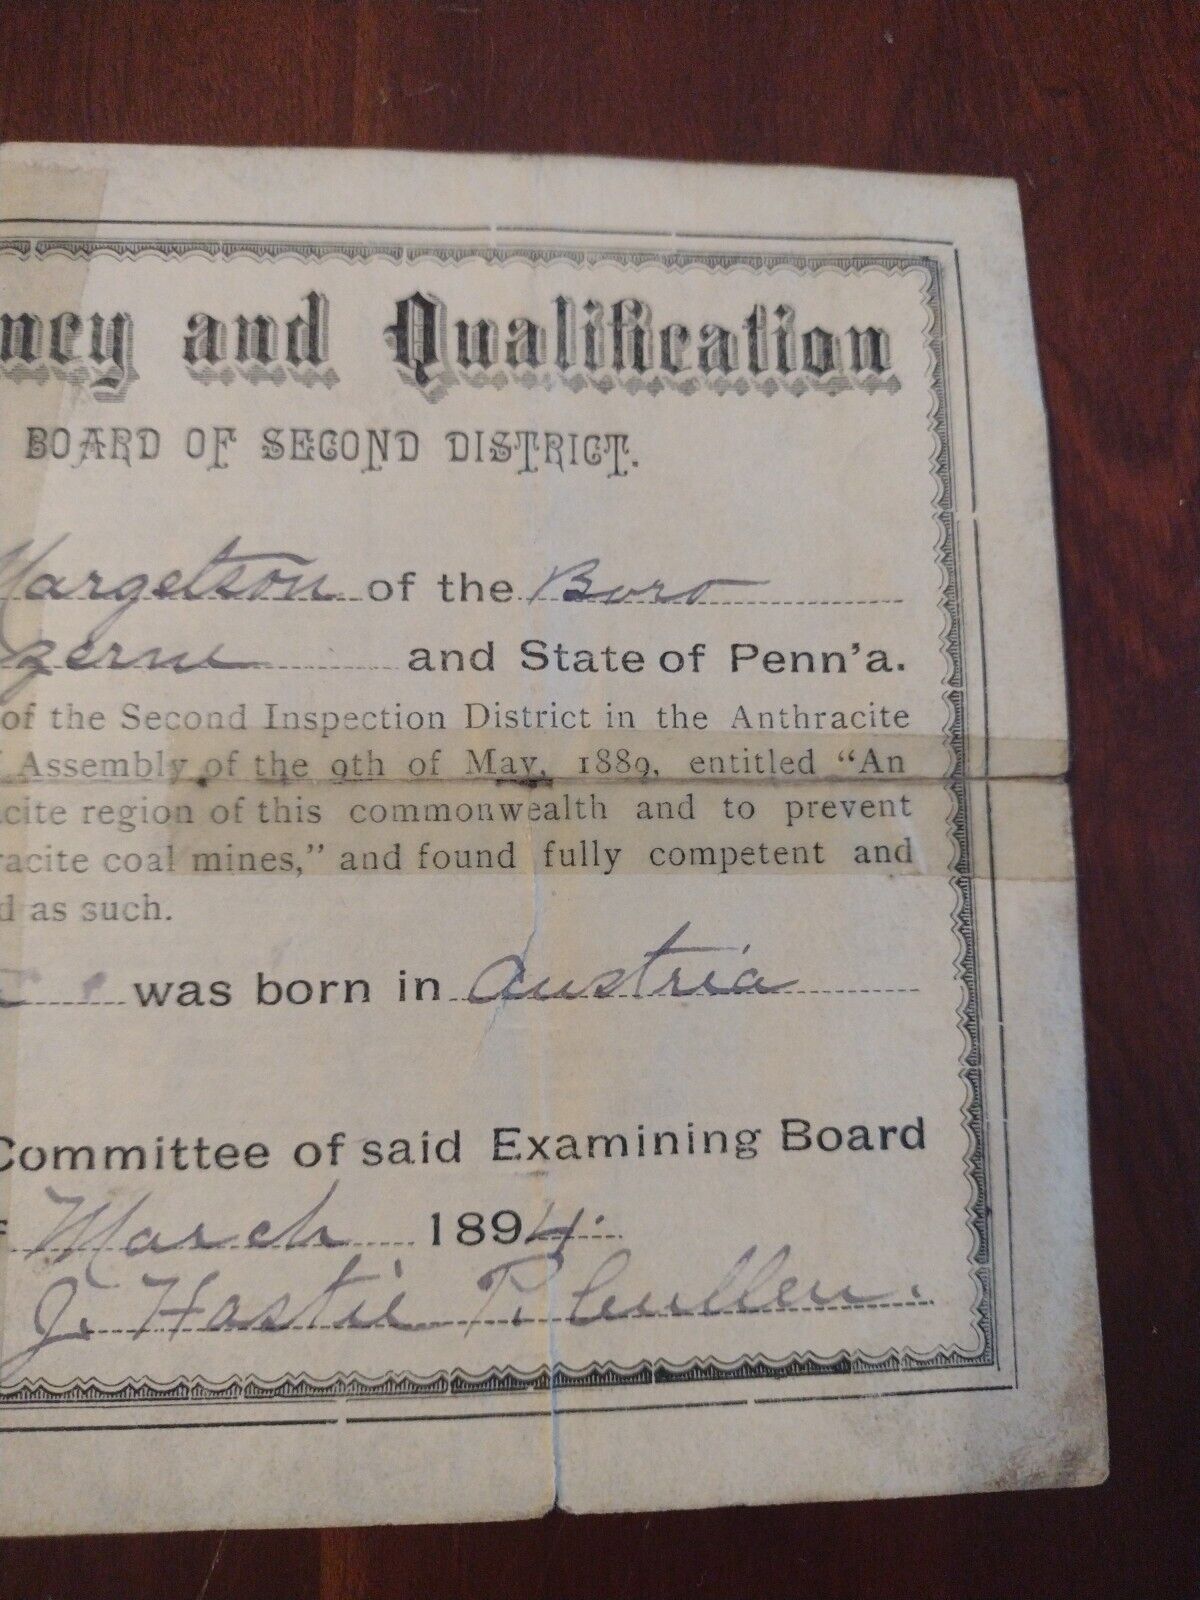 ncy and Qualification
BOARD OF SECOND DISTRICT.
Margetson of the Boro
zerne and State of Penn'a.
of the Second Inspection District in the Anthracite
Assembly of the 9th of May, 1889, entitled “An
cite region of this commonwealth and to prevent
racite coal mines,” and found fully competent and
d as such.
was born in Austria
Committee of said Examining Board
March 1894.
J. Hastie P. Cullen.